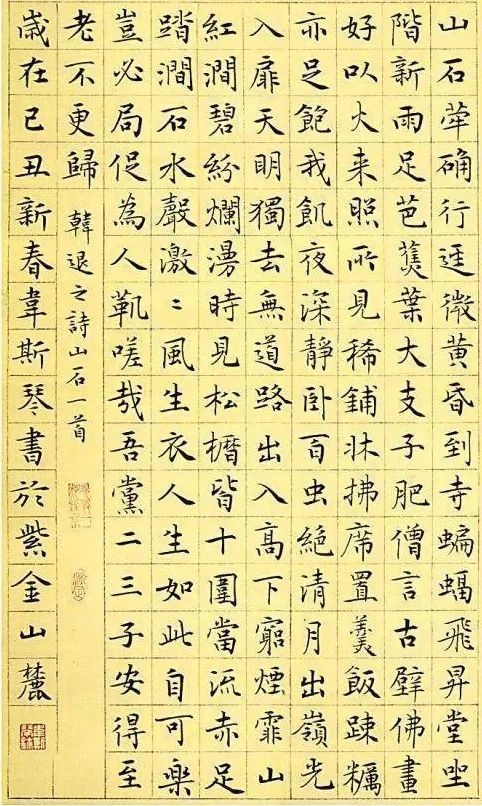 山石犖确行逕微黄昏到寺蝙蝠飛昇堂坐
階新雨足芭蕉葉大支子肥僧言古壁佛畫
好以火来照所見稀鋪牀拂席置羹飯踈糲
亦足飽我飢夜深靜卧百虫絶清月出嶺光
入扉天明獨去無道路出入高下窮煙霏山
紅澗碧紛爛漫時見松櫪皆十圍當流赤足
踏澗石水聲激〻風生衣人生如此自可樂
豈必局促為人鞿嗟哉吾黨二三子安得至
老不更歸 韓退之詩山石一首
歲在己丑新春韋斯琴書於紫金山麓